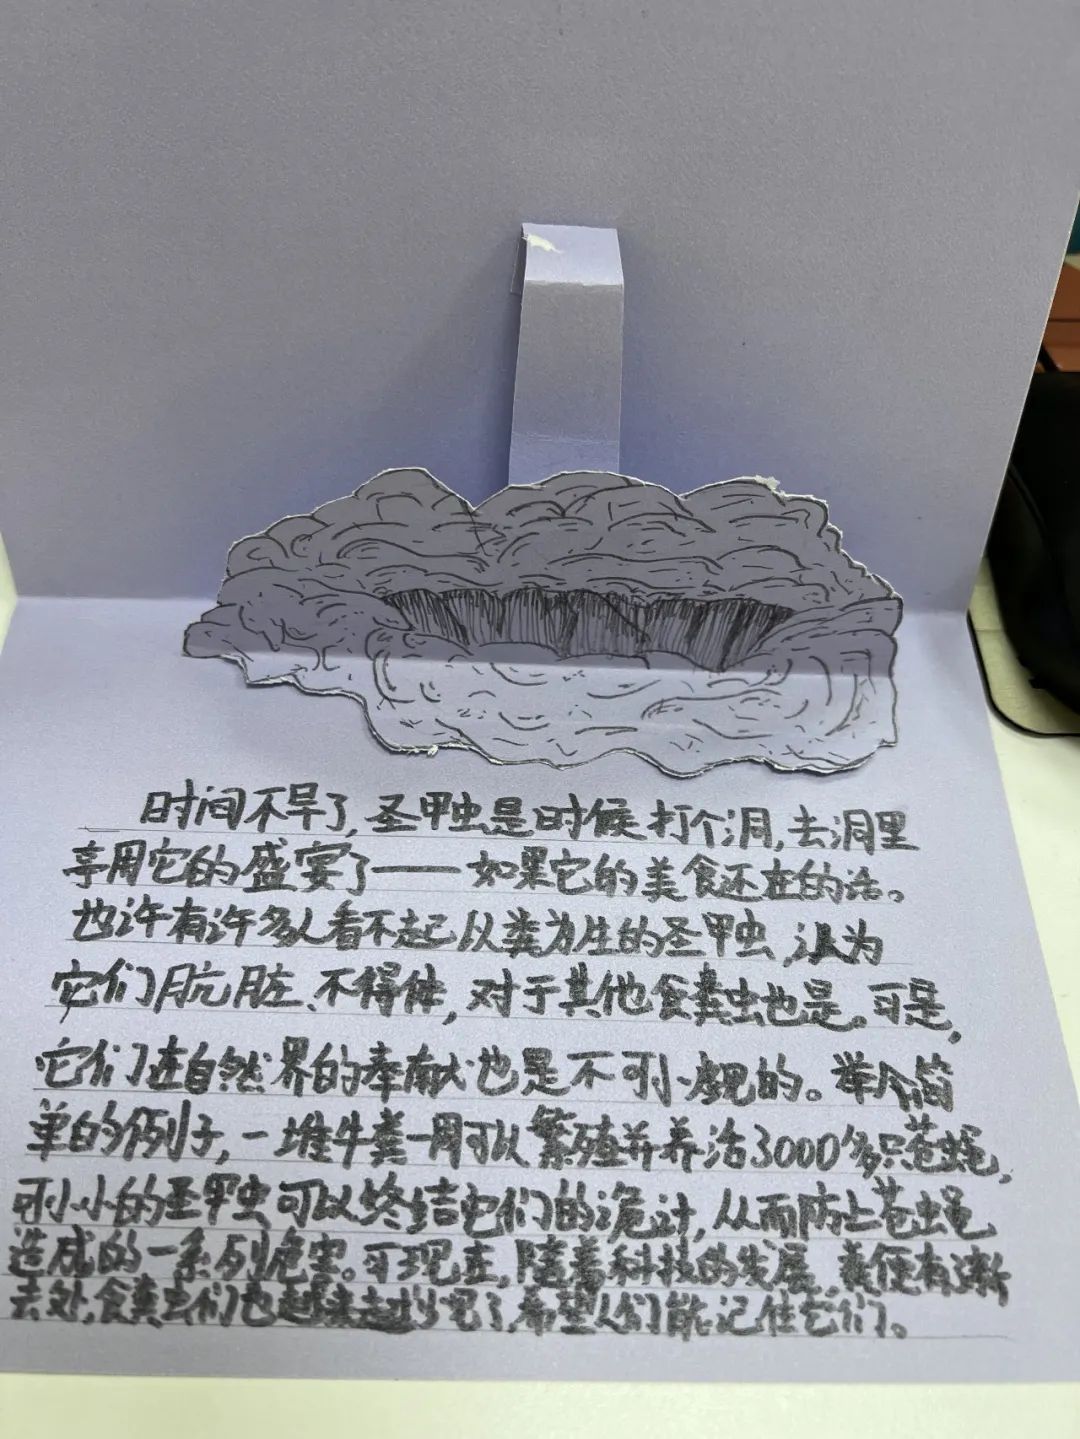 时间不早了,圣甲虫是时候打个洞,去洞里
享用它的盛宴了——如果它的美食还在的话。
也许有许多人看不起以粪为生的圣甲虫,认为
它们肮脏、不得体,对于其他食粪虫也是。可是,
它们在自然界的奉献也是不可小觑的。举个简
单的例子,一堆牛粪一周可以繁殖并养活3000多只苍蝇,
可小小的圣甲虫可以终结它们的诡计,从而防止苍蝇
造成的一系列危害。可现在,随着科技的发展,粪便有
去处,食粪虫们也越来越少见了,希望人们能记住它们。